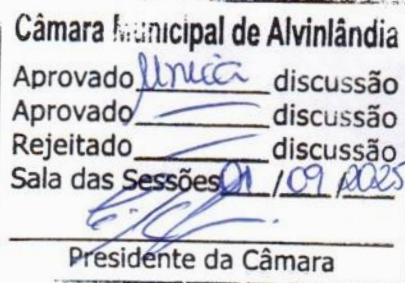 Câmara Municipal de Alvinlândia
Aprovado Única discussão
Aprovado discussão
Rejeitado discussão
Sala das Sessões 01/09/2025
Presidente da Câmara